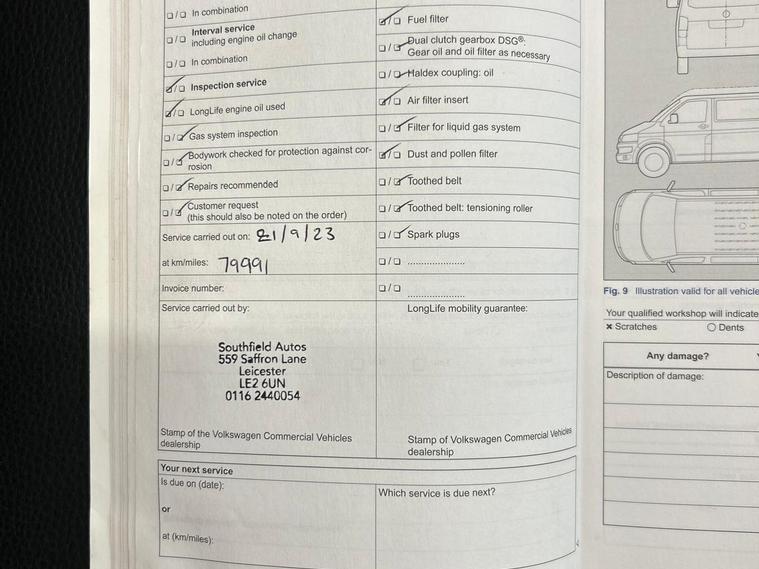 ☐/☐ In combination
☐/☐ Interval service
including engine oil change
☐/☐ In combination
☑/☐ Inspection service
☑/☐ LongLife engine oil used
☐/☑ Gas system inspection
☐/☑ Bodywork checked for protection against cor-
rosion
☐/☑ Repairs recommended
☐/☑ Customer request
(this should also be noted on the order)
Service carried out on: 21/9/23
at km/miles: 79991
Invoice number:
Service carried out by:
Southfield Autos
559 Saffron Lane
Leicester
LE2 6UN
0116 2440054
Stamp of the Volkswagen Commercial Vehicles
dealership
☑/☐ Fuel filter
☐/☑ Dual clutch gearbox DSG®:
Gear oil and oil filter as necessary
☐/☑ Haldex coupling: oil
☑/☐ Air filter insert
☐/☑ Filter for liquid gas system
☑/☐ Dust and pollen filter
☐/☑ Toothed belt
☐/☑ Toothed belt: tensioning roller
☐/☑ Spark plugs
☐/☐ .....................
☐/☐ .....................
LongLife mobility guarantee:
Stamp of Volkswagen Commercial Vehicles
dealership
Your next service
Is due on (date):
or
at (km/miles):
Which service is due next?
Fig. 9 Illustration valid for all vehicle
Your qualified workshop will indicate
× Scratches ○ Dents
Any damage?
Description of damage: